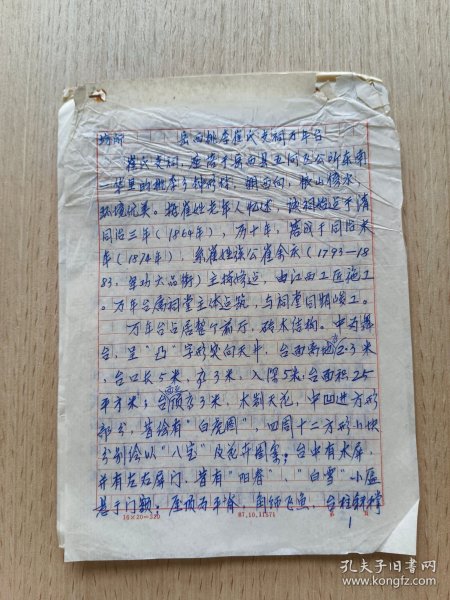 场所 岳西桃李崔氏支祠万年台
崔氏支祠，座落于岳西县五河区公所东南
一华里的桃李乡桃李村，朝西向，傍山傍水，
环境优美。据崔姓老年人忆述，该祠始建于清
同治三年（1864年），历十年，落成于同治末
年（1874年），系崔姓族公崔
（1793—18
83，大品衔）主持修建，由江西工匠施工
。万年台属祠堂主体建筑，与祠堂同期竣工。
万年台占居整个前厅，砖木结构。中为舞
台，呈“凸”字形突向天井，台面离地高2.3米
，台口长5米，高3米，入深5米；台面积25
平方米；台顶高3米，木制天花，中凹进方形
部分，昔绘有“白虎图”，四周十二方形小块
分别绘以“八宝”及花卉图案；台中有木屏，
并有左右屏门，昔有“阳春”、“白雪”小匾
悬于门额；屋顶为平脊，角饰飞鱼，台柱斜撑
1
16×20=320
87.10.11371
孔夫子旧书网
www.kongfz.com